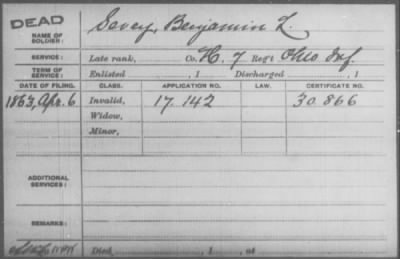 DEAD
NAME OF SOLDIER: Sevey, Benjamin L.
SERVICE: Late rank, Co. H. 7 Reg't Ohio Inf.
TERM OF SERVICE: Enlisted , 1 Discharged , 1
DATE OF FILING. CLASS. APPLICATION NO. LAW. CERTIFICATE NO.
1863, Apr. 6 Invalid, 17.142 30.866
Widow,
Minor,
ADDITIONAL SERVICES:
REMARKS:
Died , 1 , at